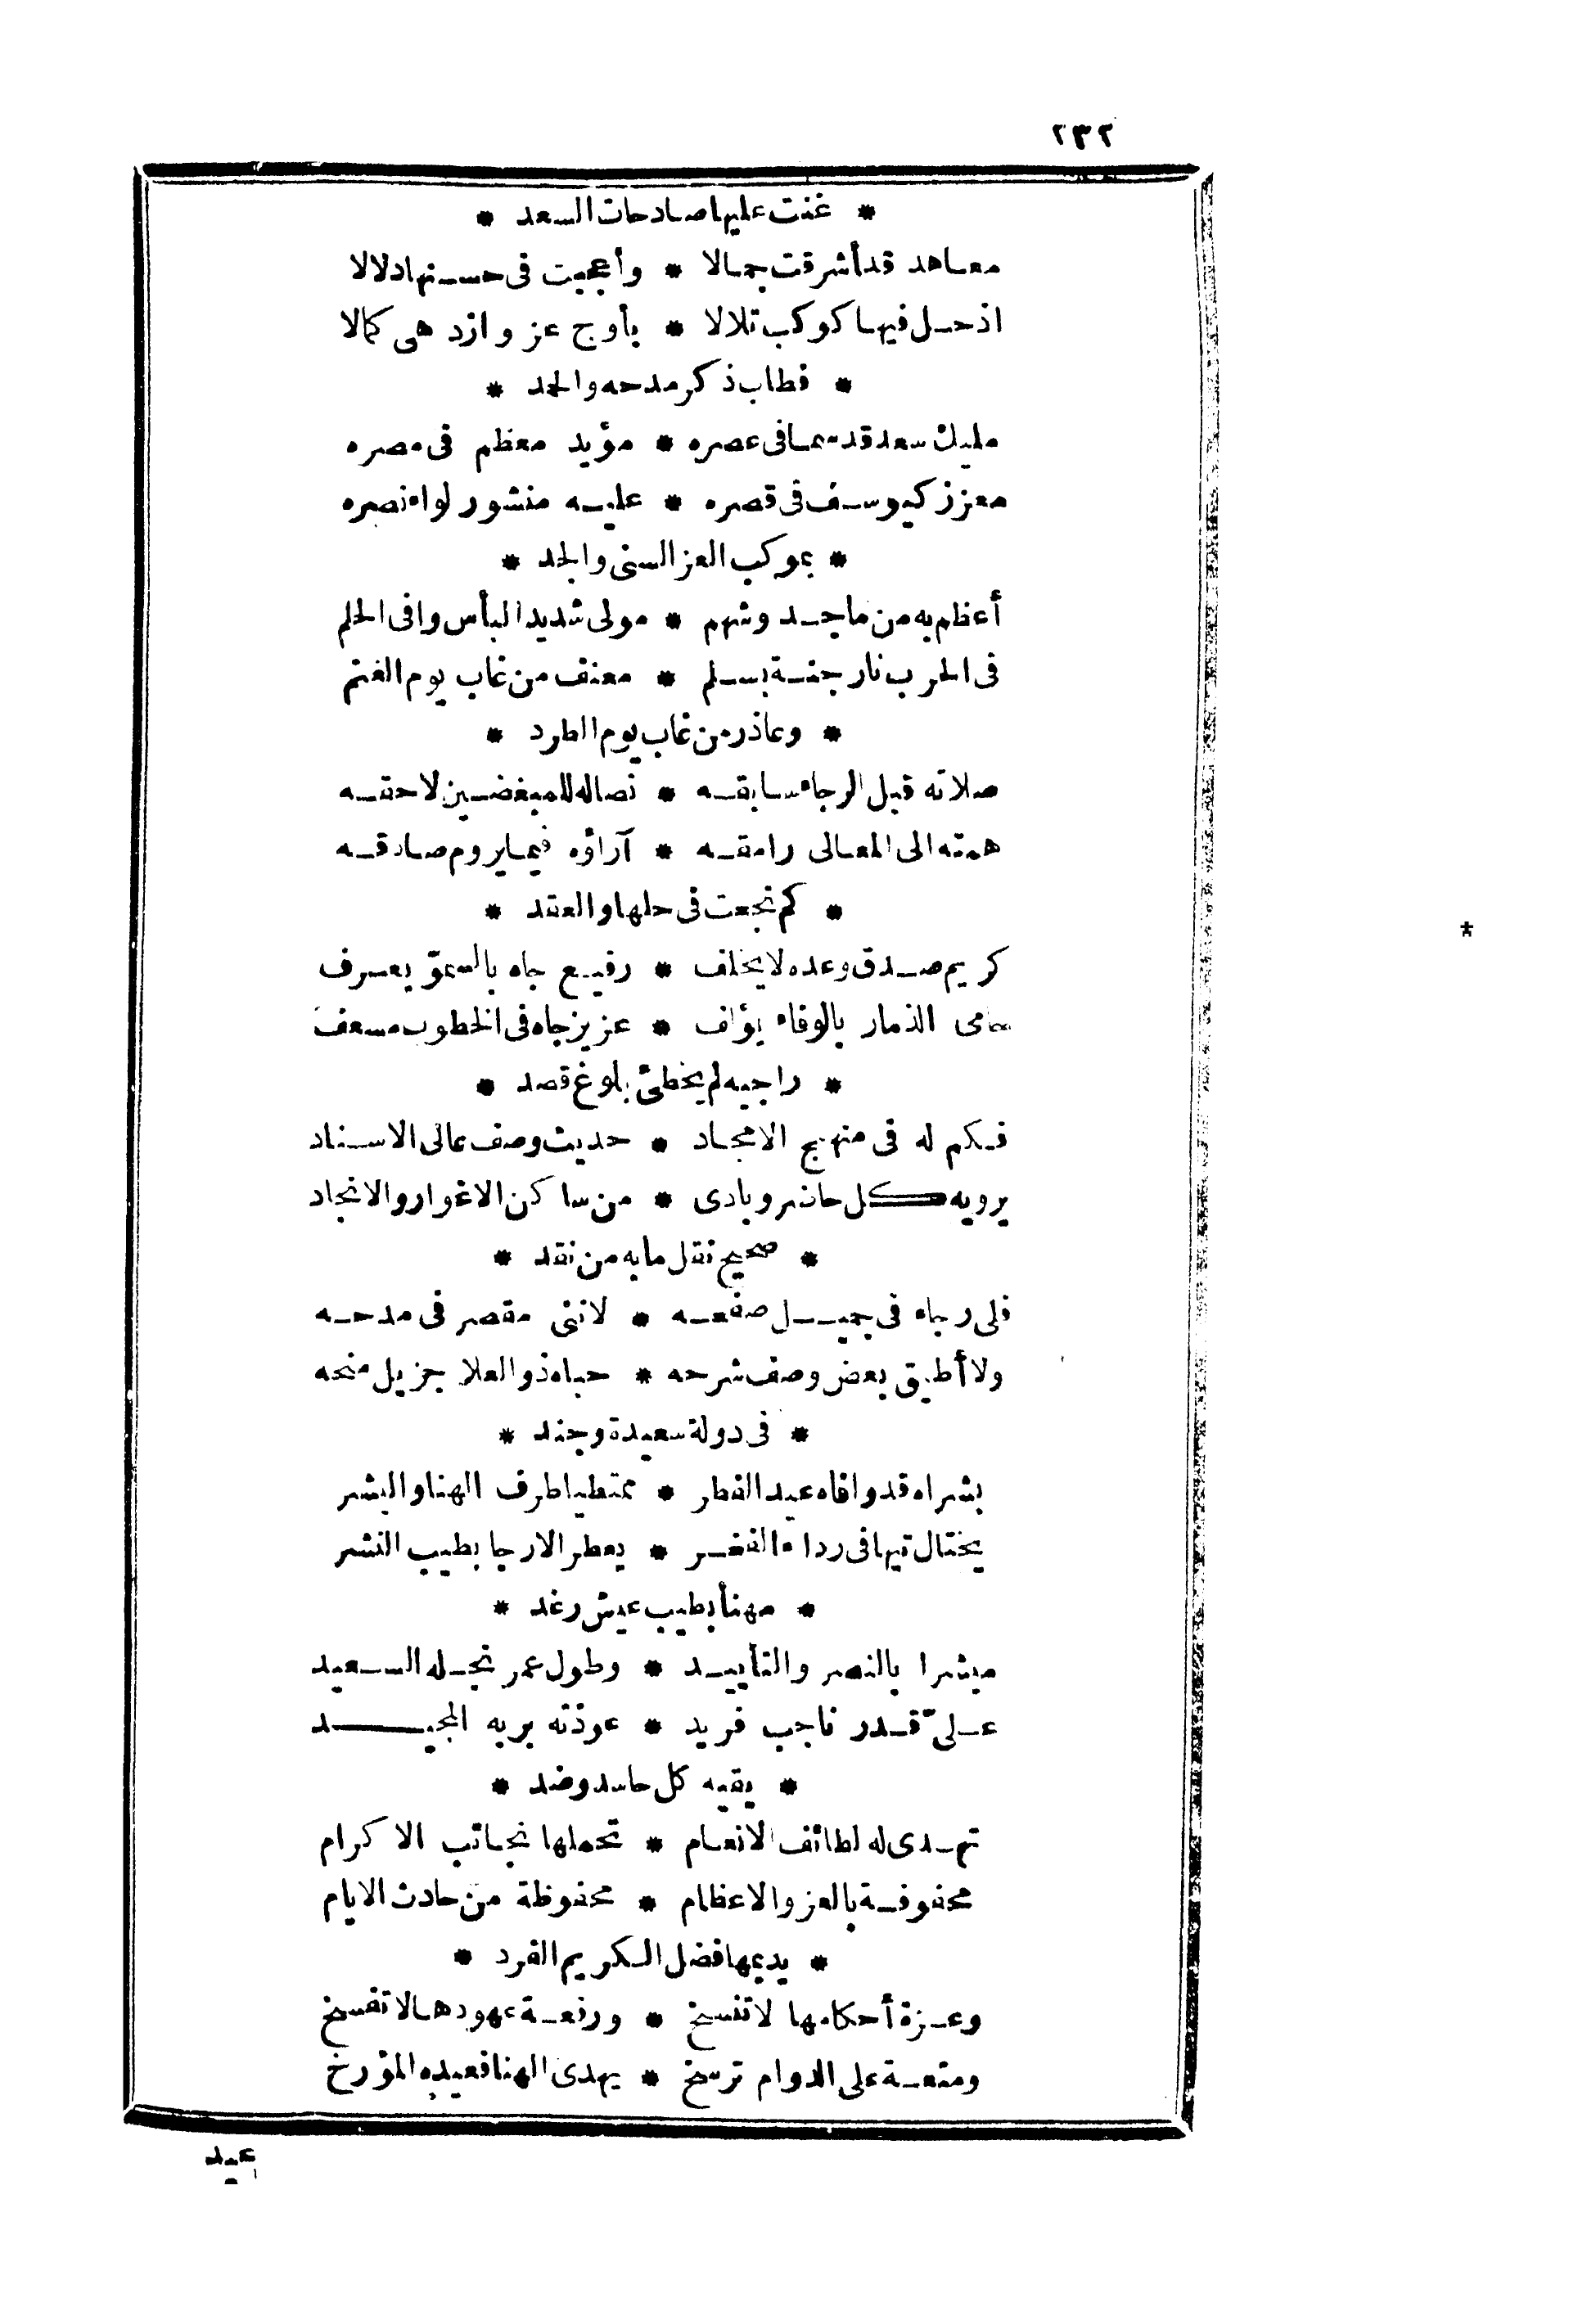 ٢٣٢
* غنت عليها صادحات السعد *
معاهد قد أشرقت جمالا * وأعجبت فى حسنها دلالا
اذ حل فيها كوكب تلالا * بأوج عز وازدهى كمالا
* فطاب ذكر مدحه والحمد *
مليك سعد قد سما فى عصره * مؤيد معظم فى مصره
معزز كيوسف فى قصره * عليه منشور لواء نصره
* بموكب العز السنى والجد *
أعظم به من ماجد وشهم * مولى شديد البأس وافى الحلم
فى الحرب نار جنة بسلم * معنف من غاب يوم الغنم
* وعاذر من غاب يوم الطرد *
صلاته قبل الرجاء سابقه * نصاله للمبغضين لاحقه
همته الى المعالى رامقه * آراؤه فيما يروم صادقه
* كم نجعت فى حلها والعقد *
كريم صدق وعده لا يخلف * رفيع جاه بالسموّ يعرف
حامى الذمار بالوفاء يؤلف * عزيز جاه فى الخطوب مسعف
* راجيه لم يخطئ بلوغ قصد *
فكم له فى منهج الامجاد * حديث وصف عالى الاسناد
يرويه كل حاضر وبادى * من ساكن الاغوار والانجاد
* صحيح نقل ما به من نقد *
فلى رجاء فى جميل صفحه * لاننى مقصر فى مدحه
ولا أطيق بعض وصف شرحه * حباه ذو العلا جزيل منحه
* فى دولة سعيدة وجند *
بشراه قد وافاه عيد الفطر * ممتطيا طرف الهنا والبشر
يختال تيها فى رداء الفخر * يعطر الارجا بطيب النشر
* مهنأ بطيب عيش رغد *
مبشرا بالنصر والتأييد * وطول عمر نجله السعيد
علىّ قدر ناجب فريد * عوذته بربه المجيد
* يقيه كل حاسد وضد *
تهدى له لطائف الانعام * تحملها نجائب الاكرام
محفوفة بالعز والاعظام * محفوظة من حادث الايام
* يديمها فضل الكريم الفرد *
وعزة أحكامها لا تنسخ * ورفعة عهودها لا تفسخ
ومتعة على الدوام ترسخ * يهدى الهنا فعيده المؤرخ
عيد